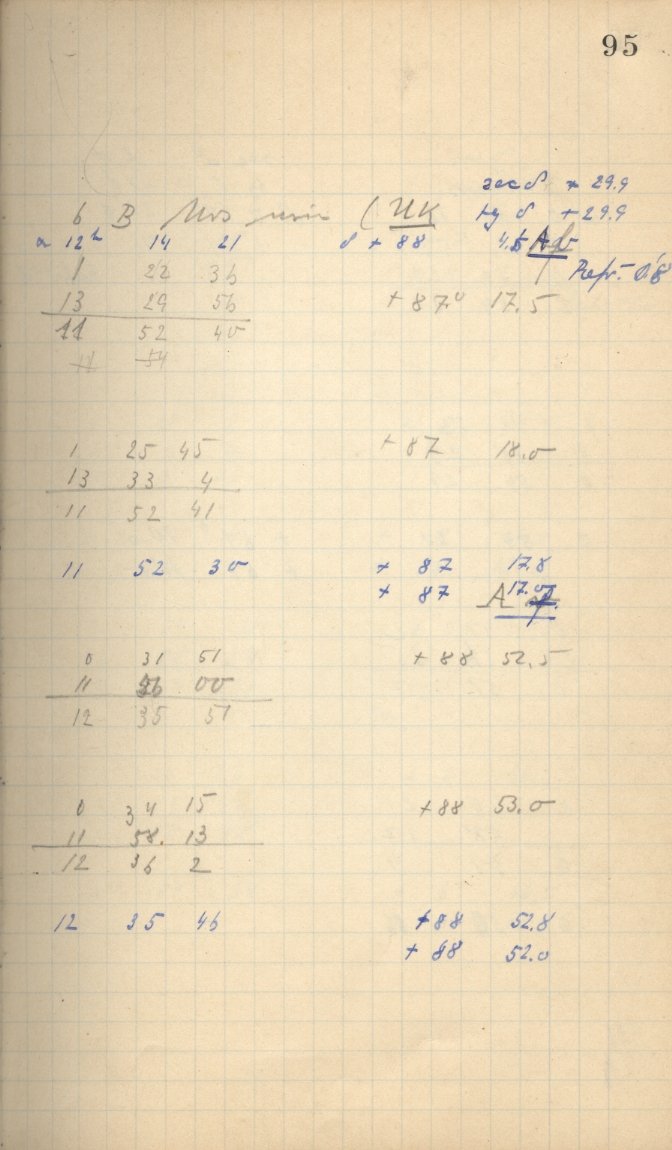 95
sec δ + 29.9
6 B Urs min (UK
tg δ + 29.9
α 12h 14 21 δ + 88 4.5
Refr. 0.8
1 22 36
13 29 56 + 87.0 17.5
11 52 40
11 54
1 25 45 + 87 18.0
13 33 4
11 52 41
11 52 30 + 87 17.8
+ 87 17.0 A
0 31 51 + 88 52.5
11 56 00
12 35 51
0 34 15 + 88 53.0
11 58. 13
12 36 2
12 35 46 + 88 52.8
+ 88 52.0